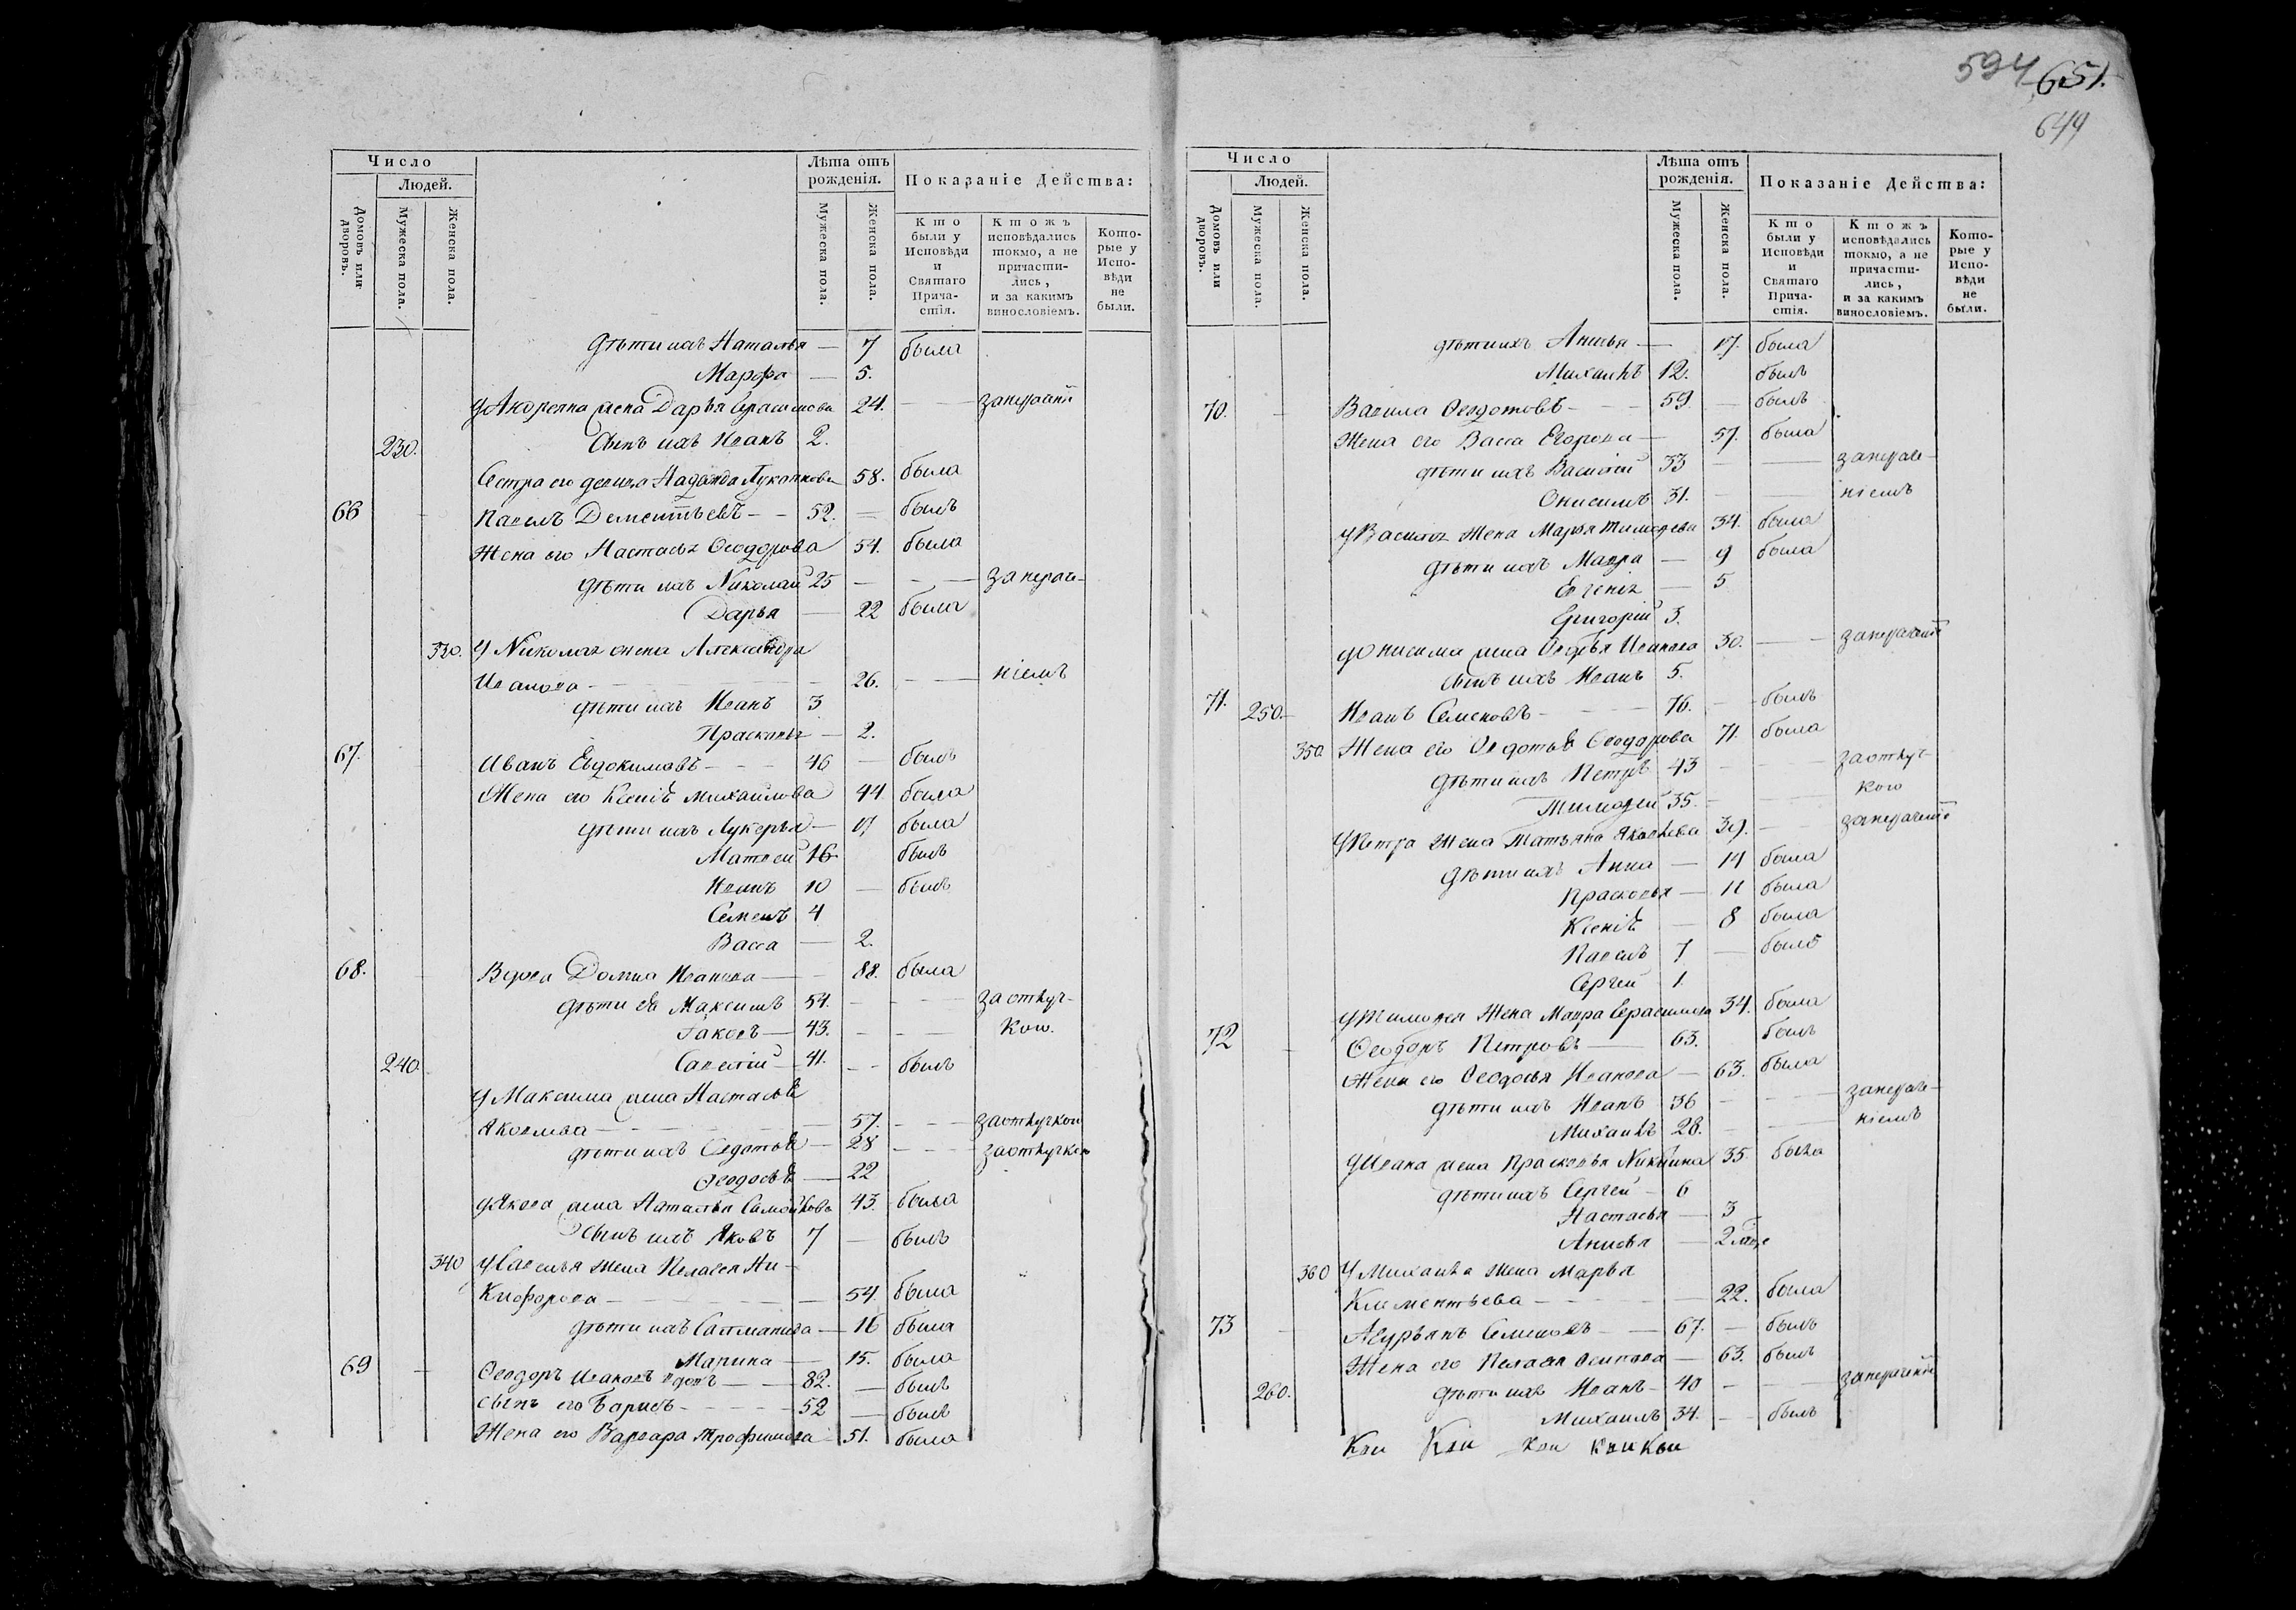 594 651.
649
Число
Людей.
Домовъ или дворовъ.
Мужеска пола.
Женска пола.
Лѣта отъ рожденія.
Мужеска пола.
Женска пола.
Показаніе Действа:
Кто были у Исповѣди и Святаго Прича-стія.
Ктожъ исповѣдались токмо, а не причасти-лись, и за какимъ винословіемъ.
Кото-рые у Испо-вѣди не были.
дѣти ихъ Наталья — 7 была
Марфа — 5.
У Андреяна жена Дарья Герасимова 24. — —
230. Сынъ ихъ Иванъ 2.
Сестра его девица Надежда 58. была
66 Павелъ Дементьевъ — — 52. — былъ
Жена его Настасья Ѳеодорова 54. была
дѣти ихъ Николай 25 — — — за нераче-
Дарья — 22 была
330. У Николая жена Александра
Иванова — 26. — — ніемъ
дѣти ихъ Иванъ 3
Прасковья — 2.
67. Иванъ Евдокимовъ — — — 46 — былъ
Жена его Ксенія Михайлова 44. была
дѣти ихъ Лукерья — 17 была
Матвей 16 былъ
Иванъ 10 — былъ
Семенъ 4
Васса — 2.
68. Вдова Домна Иванова — — 88. была
дѣти ея Максимъ 54. — — — за отлуч-
Іаковъ — 43. — — — кою.
240. Савелій — 41. — — былъ
У Максима жена Настасья
Яковлева — — — 57. — — — за отлучкою
дѣти ихъ Ѳедотья — 28 — — — за отлучкою
Ѳеодосья — 22
У Якова жена Наталья Самойлова 43. была
Сынъ ихъ Яковъ 7 — былъ
340 У Савелья жена Пелагея Ни-
кифорова — — — — 54. была
дѣти ихъ Соломанида — 16 была
Марина — 15. была
69 Ѳеодоръ Ивановъ вдовъ — — 82. — былъ
Сынъ его Борисъ — — — — 52 — былъ
Жена его Варвара Трофимова 51. была
Число
Людей.
Домовъ или дворовъ.
Мужеска пола.
Женска пола.
Лѣта отъ рожденія.
Мужеска пола.
Женска пола.
Показаніе Действа:
Кто были у Исповѣди и Святаго Прича-стія.
Ктожъ исповѣдались токмо, а не причасти-лись, и за какимъ винословіемъ.
Кото-рые у Испо-вѣди не были.
дѣти ихъ Анисья — 17. была
Михаилъ 12. былъ
70. — Вавила Ѳеодотовъ — — — 59. — былъ
Жена его Васса Егорова — 57. была
дѣти ихъ Василій 33 — — за нераче-
Онисимъ 31. — — ніемъ
У Василья Жена Марья Тимофеева 34. была
дѣти ихъ Мавра — 9 была
Евгенія — 5
Григорій 3.
У Онисима жена Ѳедосья Иванова 30. — —
сынъ ихъ Иванъ 5.
71. 250. — Иванъ Семеновъ — — — 76. — былъ
350. Жена его Ѳедотья Ѳеодорова 71. была
дѣти ихъ Петръ 43 — — за отлуч-
Тимофей 35. — — кою
У Петра Жена Татьяна Яковлева 39. — —
дѣти ихъ Анна — 14 была
Прасковья — 11 была
Ксенія — 8 была
Павелъ 7 — былъ
Сергей 1.
У Тимофея Жена Мавра Герасимова 34. была
72 — Ѳеодоръ Петровъ — 63. былъ
Жена его Ѳеодосья Иванова — 63. была
дѣти ихъ Иванъ 36 — — за нераче-
Михаилъ 28. — — ніемъ
У Ивана жена Прасковья Никитина 35. была
дѣти ихъ Сергей — 6
Настасья — 3
Анисья — 2
360 У Михаила жена Марья
Климентьева — — — — 22. была
73 — Семеновъ — — 67. — былъ
Жена его Пелагея Осипова — 63. былъ
260. дѣти ихъ Иванъ — 40 — —
Михаилъ 34. — — былъ